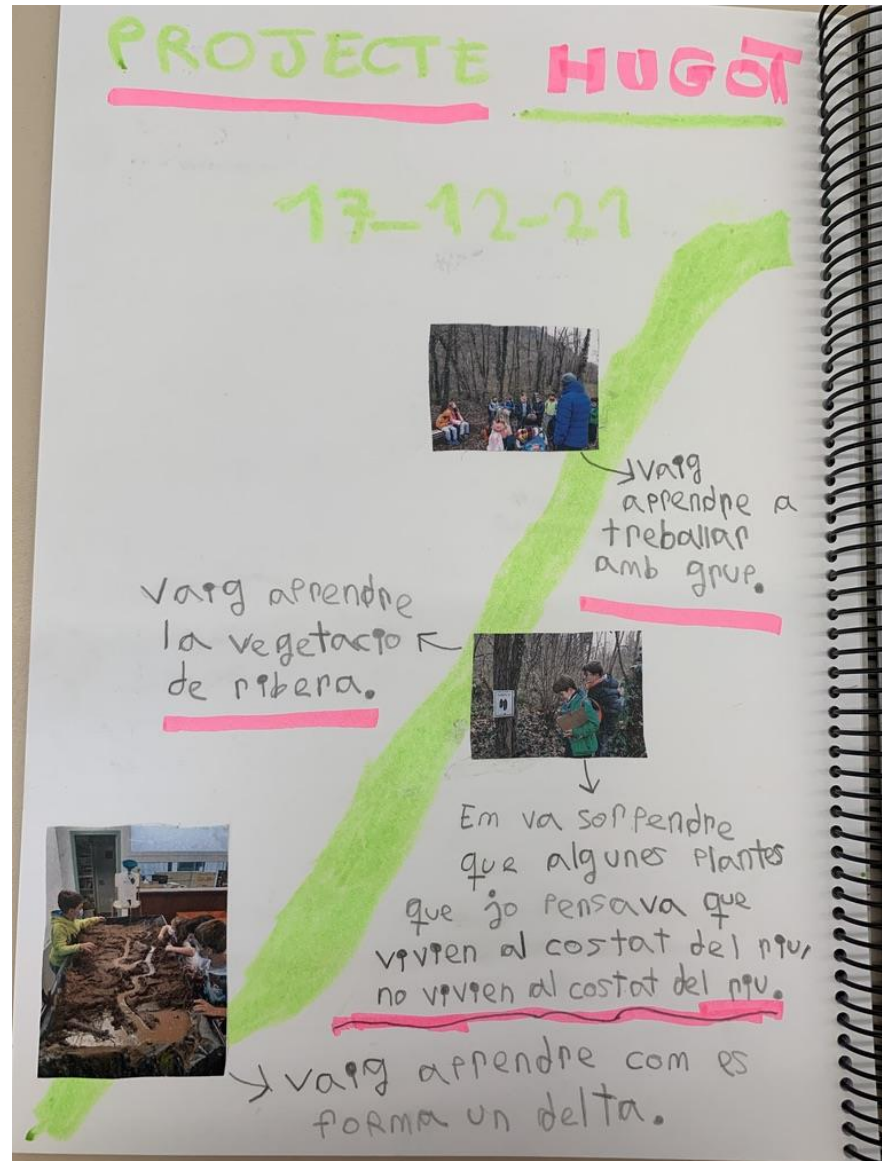 PROJECTE HUGOT
17-12-21
vaig
aprendre a
treballar
amb grup.
Vaig aprendre
la vegetacio
de ribera.
Em va sorpendre
que algunes plantes
que jo pensava que
vivien al costat del riu,
no vivien al costat del riu.
vaig aprendre com es
forma un delta.